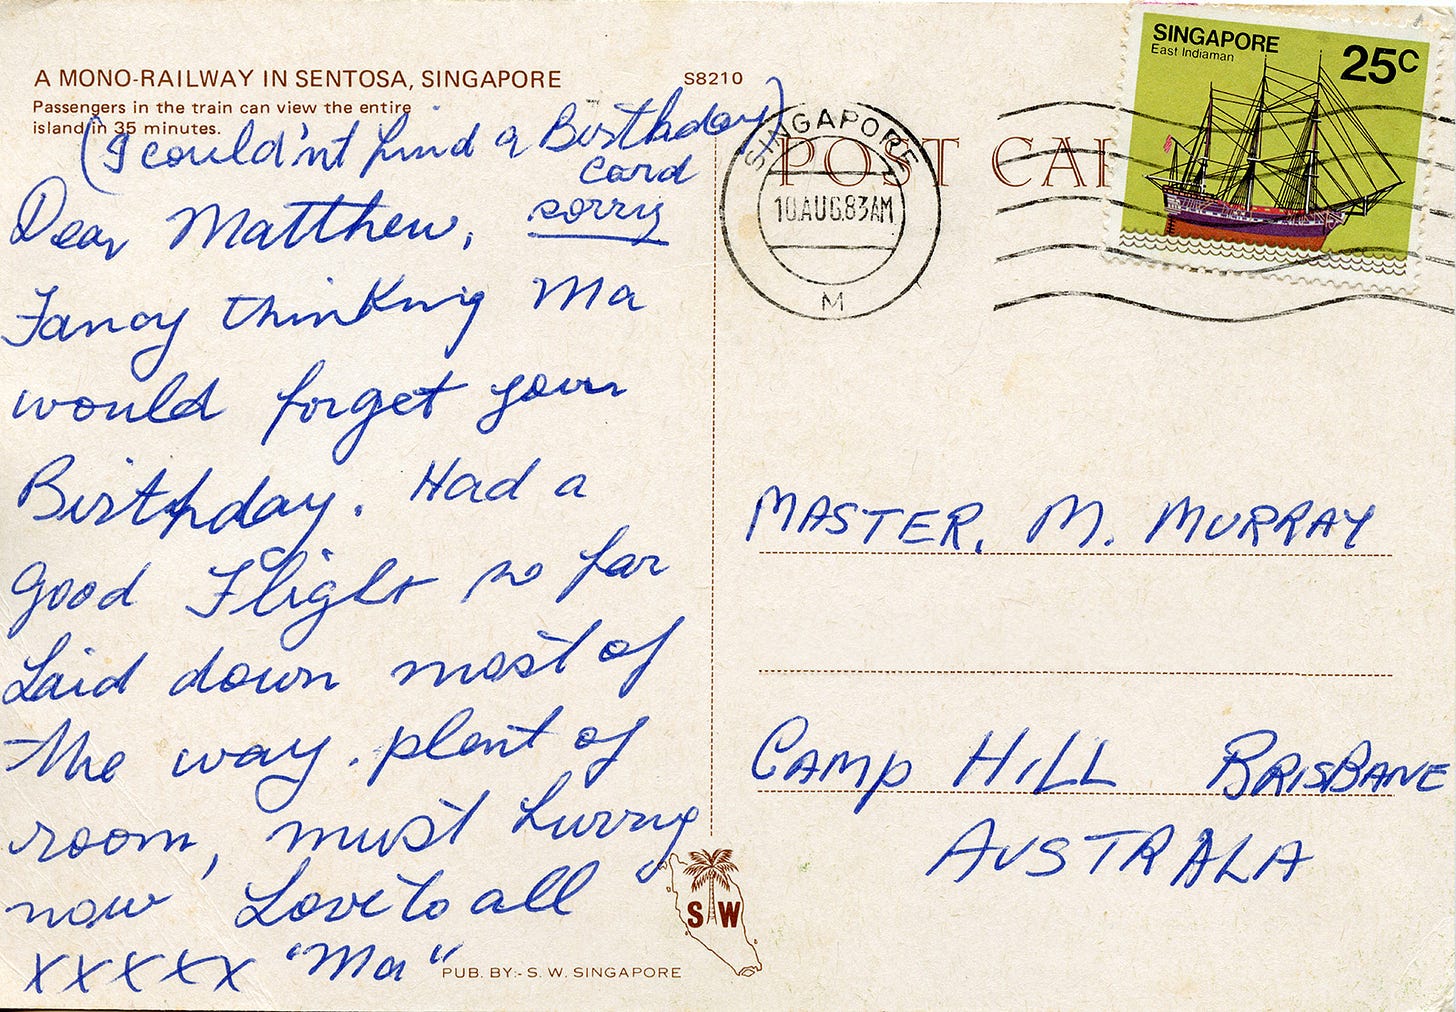 A MONO-RAILWAY IN SENTOSA, SINGAPORE
S8210
Passengers in the train can view the entire
island in 35 minutes.
(I could'nt find a Birthday)
card
sorry
Dear Matthew,
Fancy thinking Ma
would forget your
Birthday. Had a
good Flight so far
Laid down most of
the way. plent of
room, must hurry
now Love to all
XXXXX "Ma"
PUB. BY:- S. W. SINGAPORE
S W
POST CA
SINGAPORE
10AUG.83AM
M
SINGAPORE
East Indiaman
25C
MASTER. M. MURRAY
CAMP HILL BRISBANE
AUSTRALA